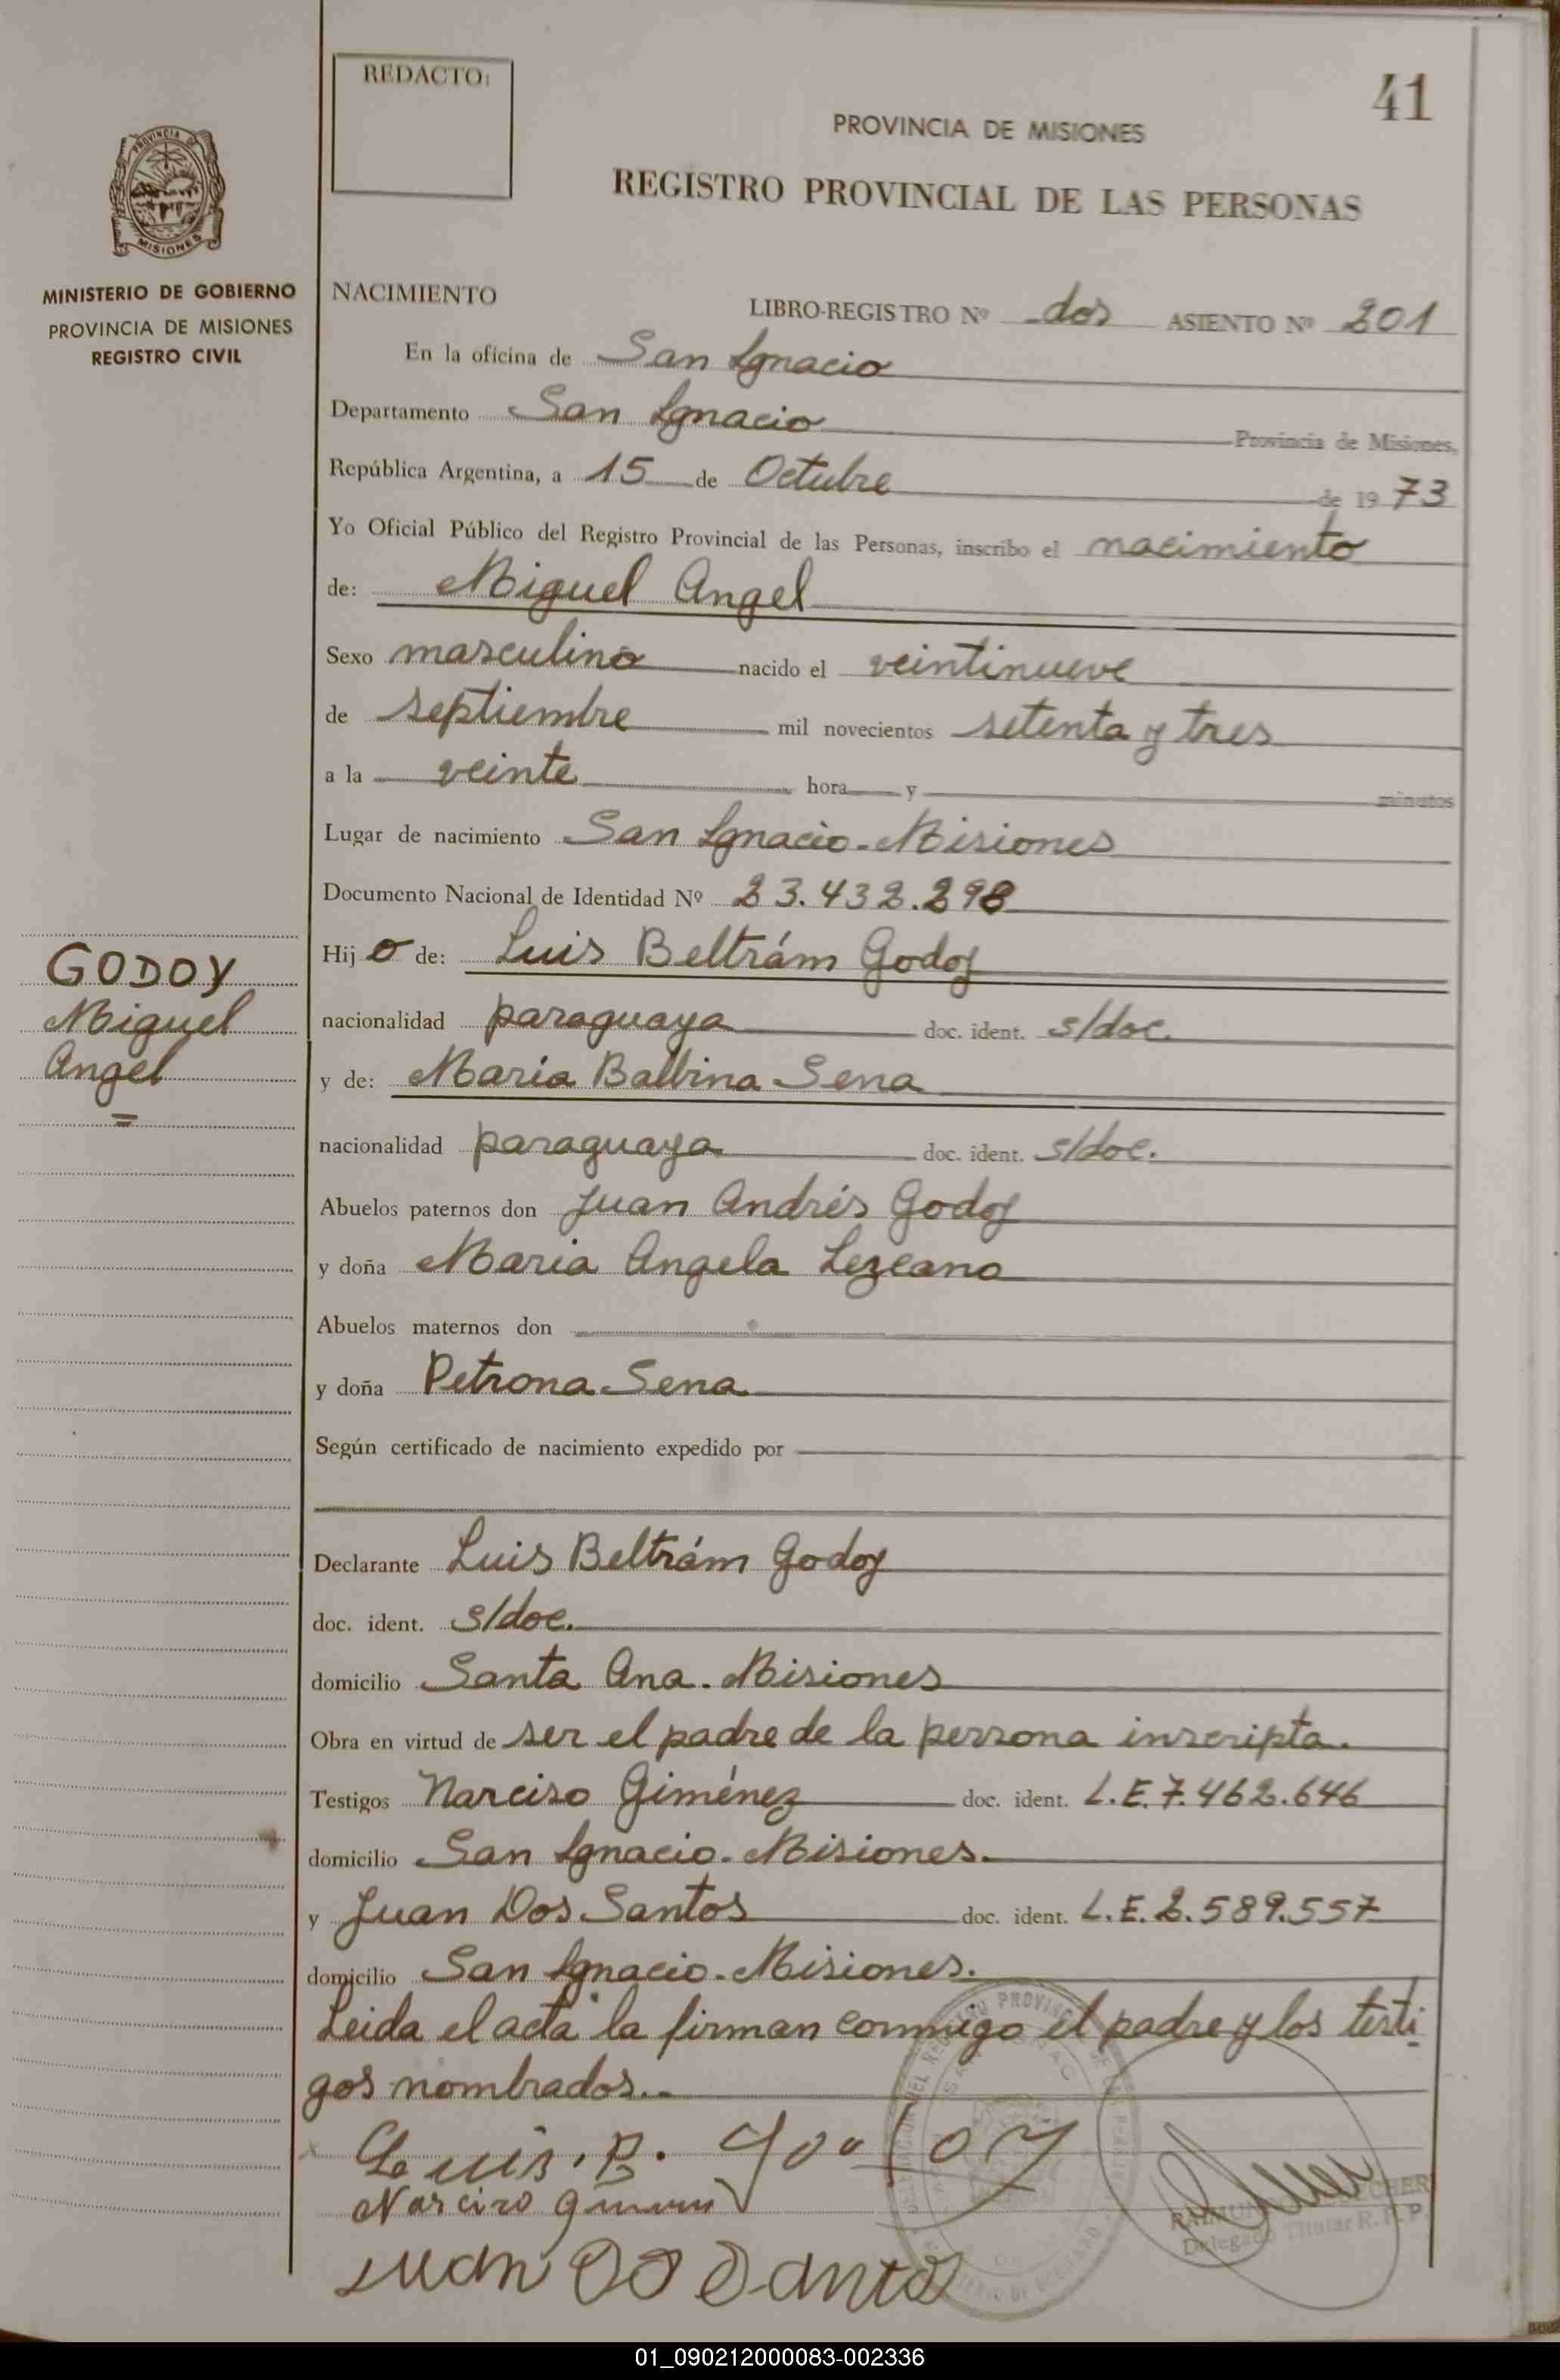 REDACTO:
41
PROVINCIA DE MISIONES
REGISTRO PROVINCIAL DE LAS PERSONAS
PROVINCIA DE MISIONES
MINISTERIO DE GOBIERNO
PROVINCIA DE MISIONES
REGISTRO CIVIL
NACIMIENTO
LIBRO-REGISTRO Nº dos ASIENTO Nº 201
En la oficina de San Ignacio
Departamento San Ignacio Provincia de Misiones,
República Argentina, a 15 de Octubre de 1973
Yo Oficial Público del Registro Provincial de las Personas, inscribo el nacimiento
de: Miguel Angel
Sexo masculino nacido el veintinueve
de septiembre mil novecientos setenta y tres
a la veinte hora y minutos
Lugar de nacimiento San Ignacio-Misiones
Documento Nacional de Identidad Nº 23.432.298
GODOY
Miguel
Angel
=
Hijo de: Luis Beltrám Godoy
nacionalidad paraguaya doc. ident. s/doc.
y de: Maria Balbina Sena
nacionalidad paraguaya doc. ident. s/doc.
Abuelos paternos don Juan Andrés Godoy
y doña Maria Angela Lezcano
Abuelos maternos don
y doña Petrona Sena
Según certificado de nacimiento expedido por
Declarante Luis Beltrám Godoy
doc. ident. s/doc.
domicilio Santa Ana. Misiones
Obra en virtud de ser el padre de la persona inscripta.
Testigos Narciso Giménez doc. ident. L.E. 7.462.646
domicilio San Ignacio. Misiones.
y Juan Dos Santos doc. ident. L.E. 2.589.557
domicilio San Ignacio. Misiones.
Leida el acta la firman conmigo el padre y los testi
gos nombrados..-
Luis. B. Godoy
Narciso
Juan Do Santo
Delegado Titular R. P. P.
01_090212000083-002336